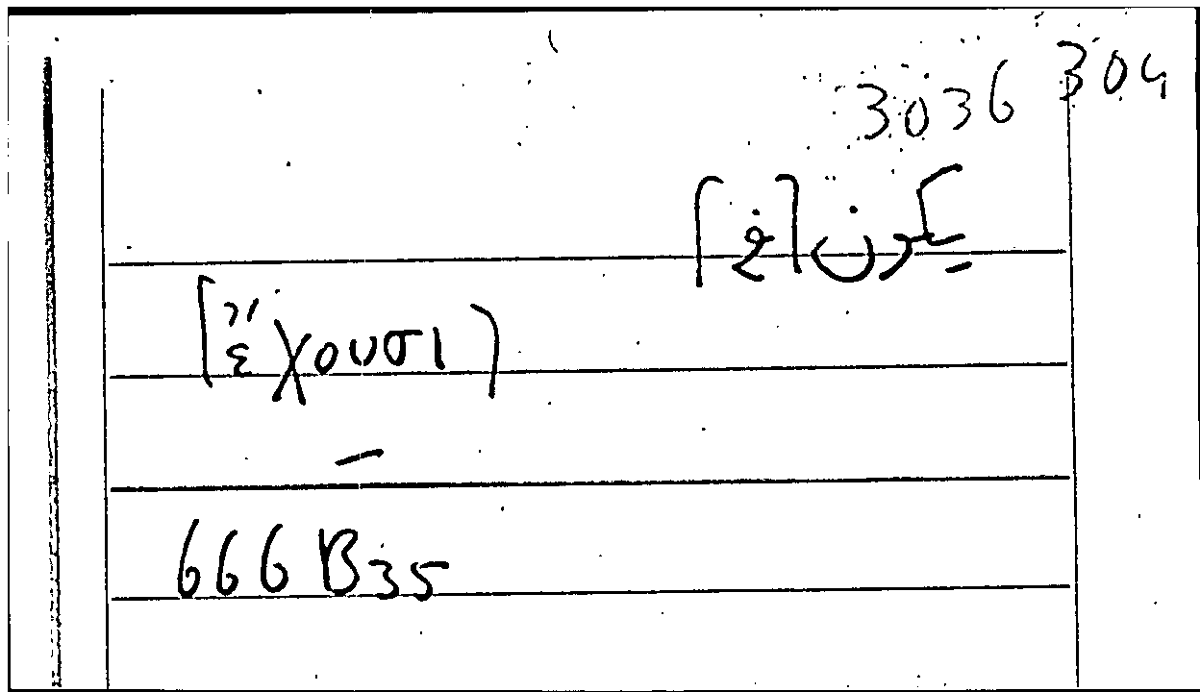 3036 304
يكون [في]
[ἔχουσι)
–
666 B35